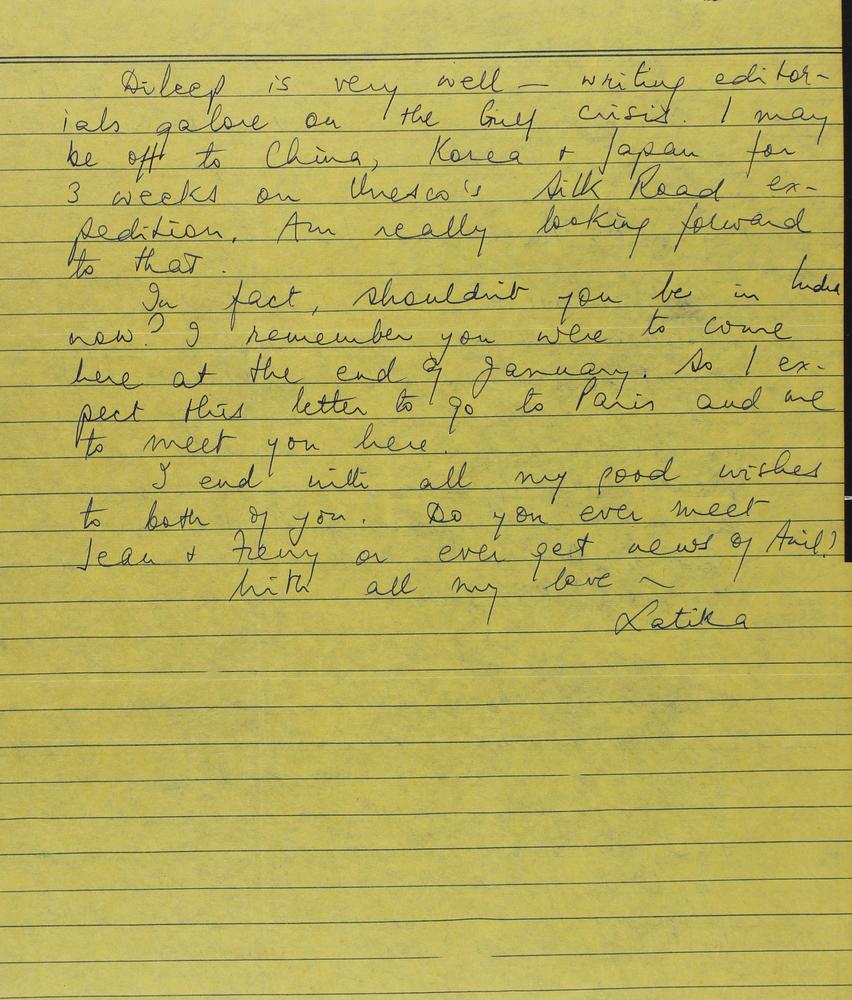 Dileep is very well — writing editor-
ials galore on the Gulf crisis. I may
be off to China, Korea + Japan for
3 weeks on Unesco's Silk Road ex-
pedition. Am really looking forward
to that.
In fact, shouldn't you be in India
now? I remember you were to come
here at the end of January. So I ex-
pect this letter to go to Paris and me
to meet you here.
I end with all my good wishes
to both of you. Do you ever meet
Jean + or ever get news of Anil?
With all my love ~
Latika